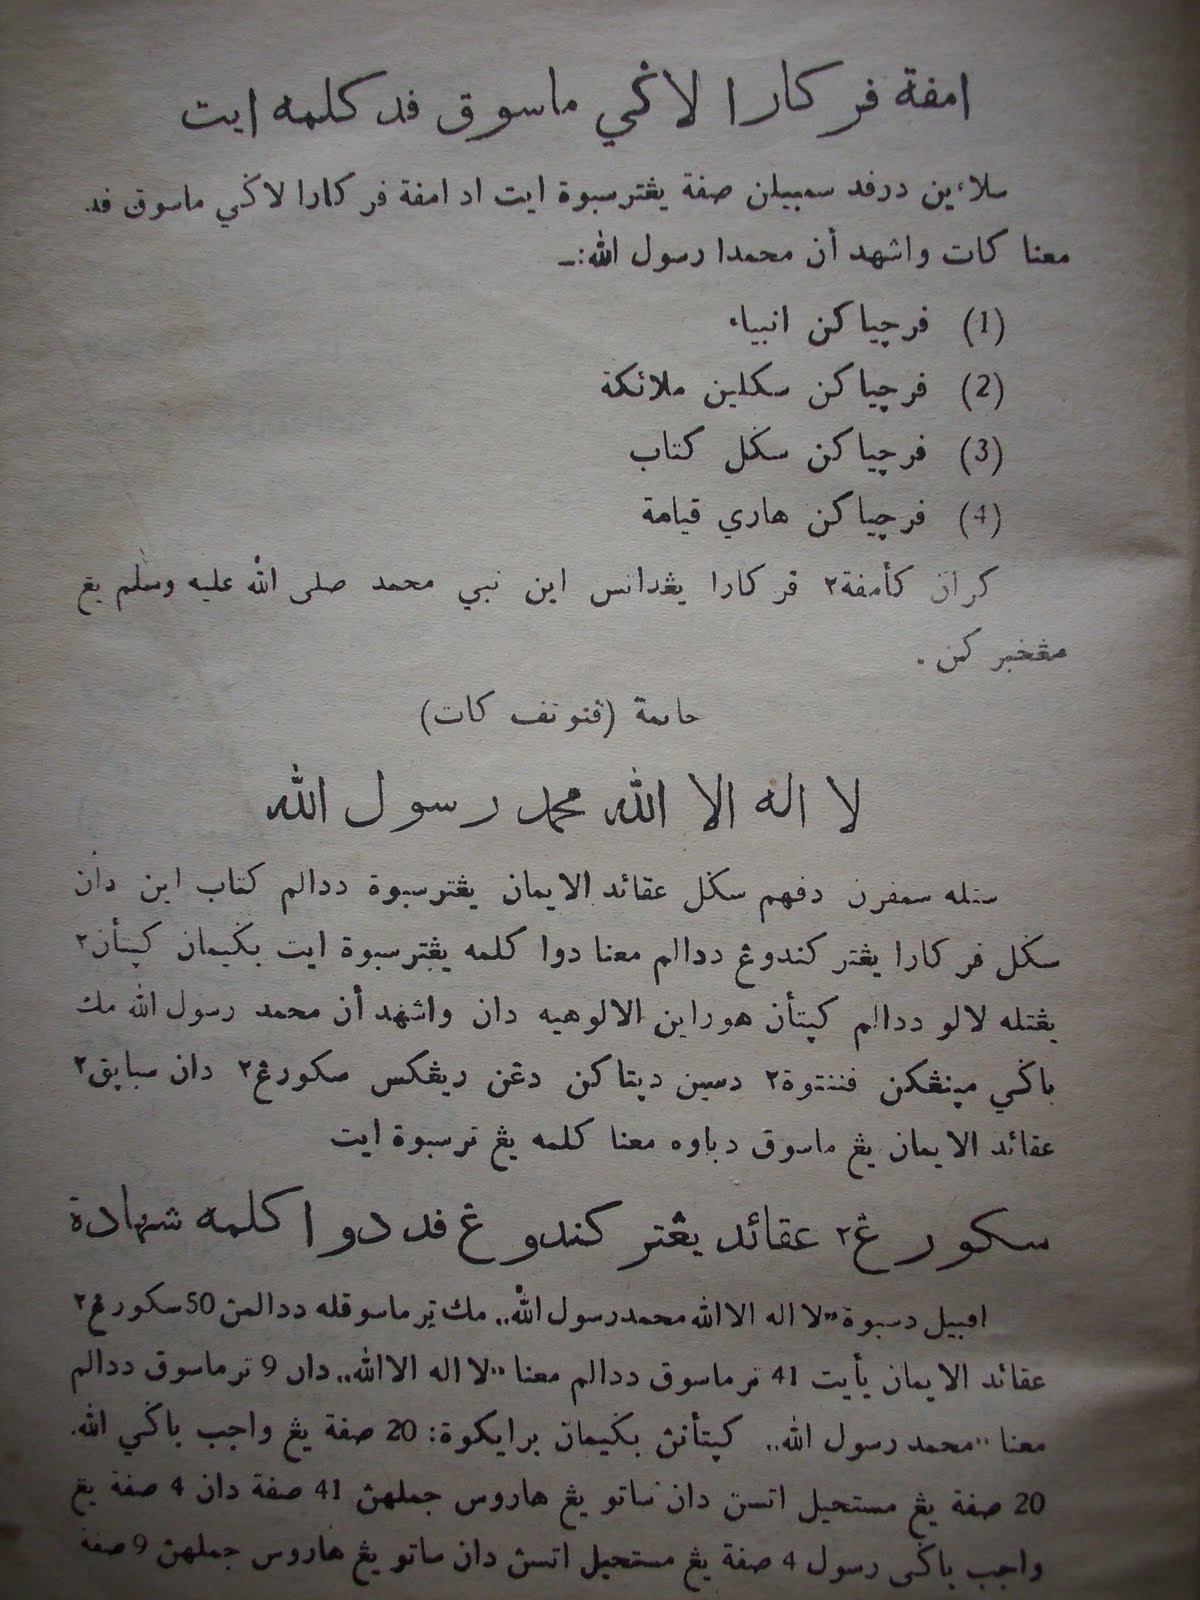 امفة فركارا لاݢي ماسوق فد كلمه ايت
سلاءين درفد سمبيلن صفة يڠترسبوة ايت اد امفة فركارا لاݢي ماسوق فد.
معنا كات واشهد أن محمدا رسول الله:ـ
(1) فرچياكن انبياء
(2) فرچياكن سكلين ملائكة
(3) فرچياكن سݢل كتاب
(4) فرچياكن هاري قيامة
كران كأمفة٢ فركارا يڠدانس اين نبي محمد صلى الله عليه وسلم يڠ
مڠخبركن .
خاتمة (فنوتف كات)
لا اله الا الله محمد رسول الله
ستله سمفرن دفهم سݢل عقائد الايمان يڠترسبوة ددالم كتاب اين دان
سݢل فركارا يڠتركندوڠ ددالم معنا دوا كلمه يڠترسبوة ايت بݢيمان كڽتأن٢
يڠتله لالو ددالم كڽتأن هوراين الالوهيه دان واشهد أن محمد رسول الله مك
باݢي مڽنڠكن فننتوة٢ دسين دڽتاكن دڠن ريڠكس سكورڠ٢ دان سباڽق٢
عقائد الايمان يڠ ماسوق دباوه معنا كلمه يڠ ترسبوة ايت
سكورڠ٢ عقائد يڠتركندوڠ فد دوا كلمه شهادة
افبيل دسبوة ,,لا اله الا الله محمد رسول الله,, مك ترماسوقله ددالمڽ 50 سكورڠ٢
عقائد الايمان يأيت 41 ترماسوق ددالم معنا ,,لا اله الا الله,, دان 9 ترماسوق ددالم
معنا ,,محمد رسول الله,, كڽتأنڽ بݢيمان برايكوة: 20 صفة يڠ واجب باݢي الله.
20 صفة يڠ مستحيل اتسڽ دان ساتو يڠ هاروس جملهڽ 41 صفة دان 4 صفة يڠ
واجب باݢي رسول 4 صفة يڠ مستحيل اتسڽ دان ساتو يڠ هاروس جملهڽ 9 صفة